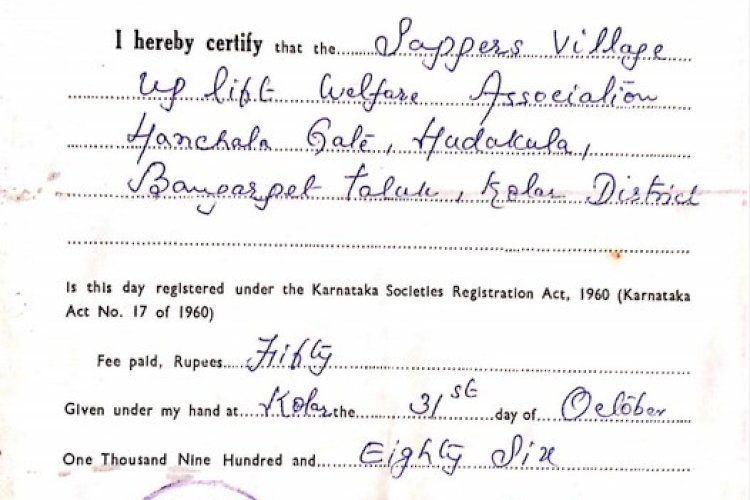 I hereby certify that the Sappers Village
Up lift Welfare Association
Hanchala Gate, Hudakula,
Bangarpet Taluk, Kolar District
Is this day registered under the Karnataka Societies Registration Act, 1960 (Karnataka
Act No. 17 of 1960)
Fee paid, Rupees Fifty
Given under my hand at Kolar the 31st day of October
One Thousand Nine Hundred and Eighty Six